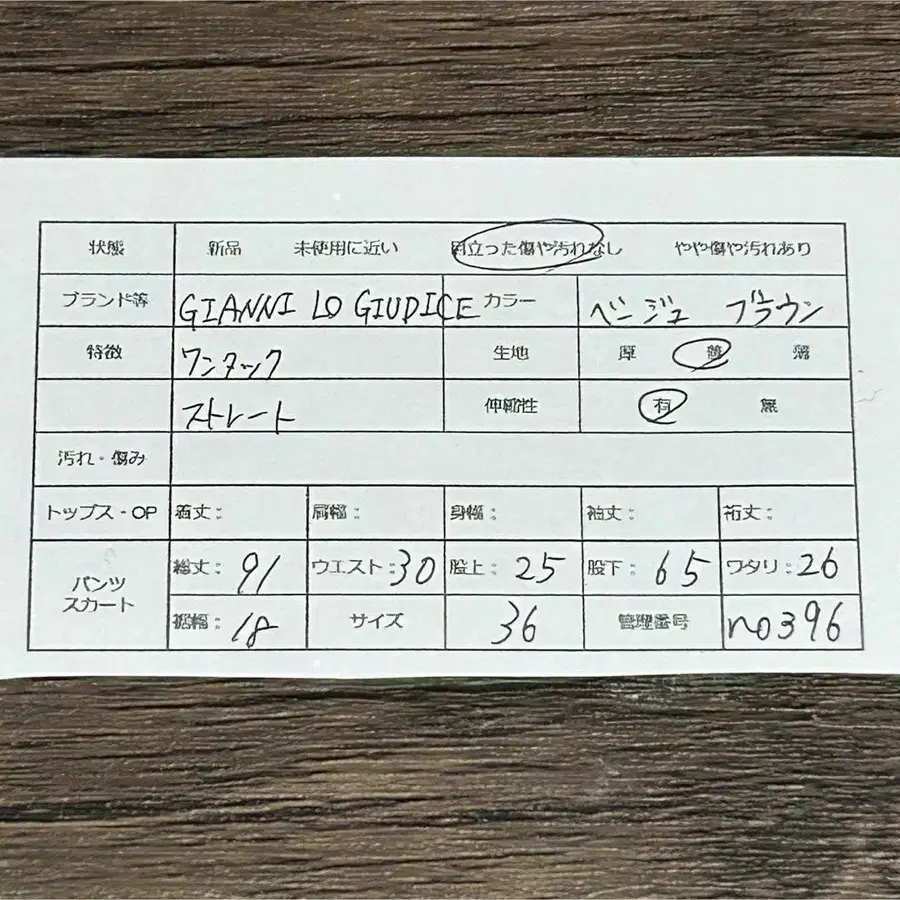 状態 新品 未使用に近い 目立った傷や汚れなし やや傷や汚れあり
ブランド等 GIANNI LO GIUDICE カラー ベージュ ブラウン
特徴 ワンタック 生地 厚 普 薄
ストレート 伸縮性 有 無
汚れ・傷み
トップス・OP 着丈: 肩幅: 身幅: 袖丈: 裄丈:
パンツ スカート 総丈: 91 ウエスト: 30 股上: 25 股下: 65 ワタリ: 26
裾幅: 18 サイズ 36 管理番号 no396